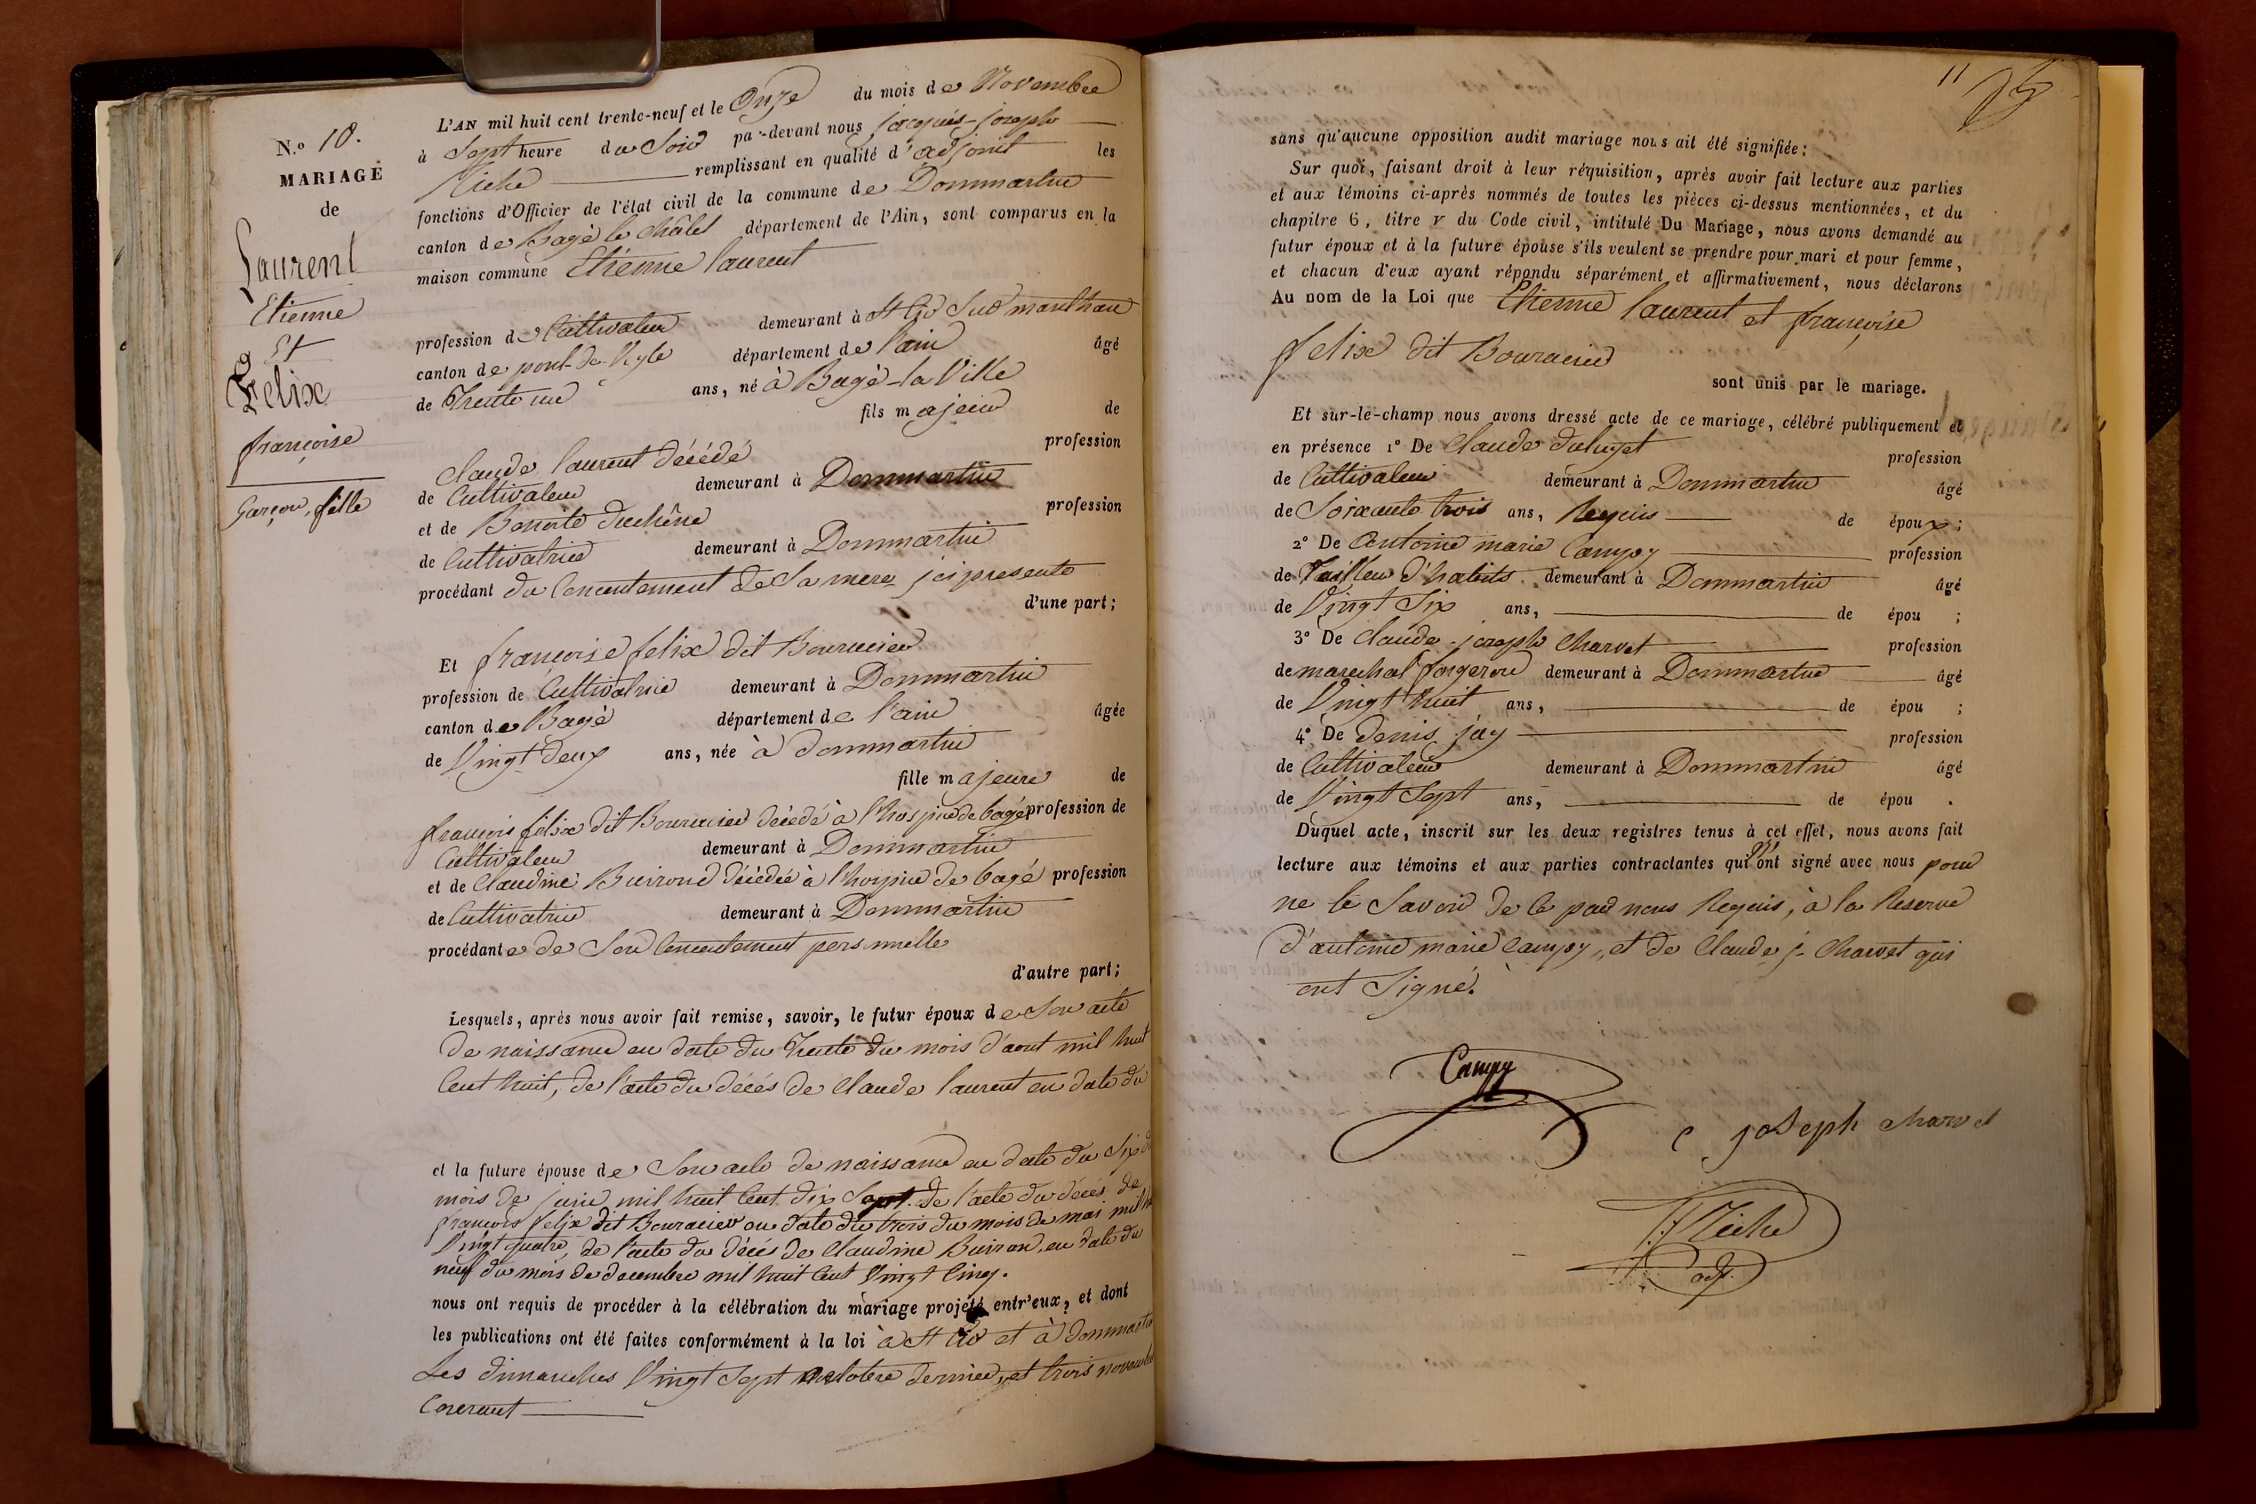 N.º 10.
MARIAGE
de
Laurent
Etienne
Et
Felix
françoise
Garçon, fille
L'AN mil huit cent trente-neuf et le Onze du mois de Novembre
à Sept heure du Soir par-devant nous jacques-joseph
remplissant en qualité d'adjoint les
fonctions d'Officier de l'état civil de la commune de Dommartin
canton de Bagé le châtel département de l'Ain, sont comparus en la
maison commune Etienne laurent
profession de Cultivateur demeurant à St Cir Sur manthon
canton de pont-de-Veyle département de l'ain âgé
de Trente un ans, né à Bagé-la Ville
fils majeur de
claude laurent décédé profession
de Cultivateur demeurant à Dommartin
et de Benoite Duchêne profession
de Cultivatrice demeurant à Dommartin
procédant du Consentement de Sa mere jci presente
d'une part;
Et françoise felix dit Bouracier
profession de Cultivatrice demeurant à Dommartin
canton de Bagé département de l'ain âgée
de Vingt deux ans, née à dommartin
fille majeure de
françois félix dit Bouracier décédé à l'hospice de bagé profession de
Cultivateur demeurant à Dommartin
et de Claudine Buiron décédée à l'hospice de bagé profession
de Cultivatrice demeurant à Dommartin
procédante de Son Consentement personnelle
d'autre part;
Lesquels, après nous avoir fait remise, savoir, le futur époux de Son acte
de naissance en date du trente du mois d'aout mil huit
Cent huit, de l'acte du décés de Claude laurent en date du
et la future épouse de Son acte de naissance en date du Six du
mois de juin mil huit Cent dix Sept. de l'acte du décés de
françois felix dit Bouracier en date du trois du mois de mai mil
Vingt quatre, de l'acte du décés de Claudine Buiron, en date du
neuf du mois de decembre mil huit Cent Vingt Cinq.
nous ont requis de procéder à la célébration du mariage projeté entr'eux, et dont
les publications ont été faites conformément à la loi à St Cir et à dommartin
Les dimanches Vingt Sept octobre dernier, et trois novembre
Courant
11
sans qu'aucune opposition audit mariage nous ait été signifiée;
Sur quoi, faisant droit à leur réquisition, après avoir fait lecture aux parties
et aux témoins ci-après nommés de toutes les pièces ci-dessus mentionnées, et du
chapitre 6, titre v du Code civil, intitulé Du Mariage, nous avons demandé au
futur époux et à la future épouse s'ils veulent se prendre pour mari et pour femme,
et chacun d'eux ayant répondu séparément et affirmativement, nous déclarons
Au nom de la Loi que Etienne laurent et françoise
felix dit Bouracier
sont unis par le mariage.
Et sur-le-champ nous avons dressé acte de ce mariage, célébré publiquement et
en présence 1º De Claude profession
de Cultivateur demeurant à Dommartin âgé
de Soixante trois ans, Requis de époux;
2º De Antoine marie Campy profession
de Tailleur d'habits demeurant à Dommartin âgé
de Vingt Six ans, de épou ;
3º De Claude-joseph Charvet profession
de marechal forgeron demeurant à Dommartin âgé
de Vingt huit ans, de épou ;
4º De denis jay profession
de Cultivateur demeurant à Dommartin âgé
de Vingt Sept ans, de épou .
Duquel acte, inscrit sur les deux registres tenus à cet effet, nous avons fait
lecture aux témoins et aux parties contractantes qui n'ont signé avec nous pour
ne le Savoir de ce par nous Requis, à la Reserve
d'antoine marie Campy, et de Claude j. Charvet qui
ont Signé.
Campy
C joseph charvet
adj.